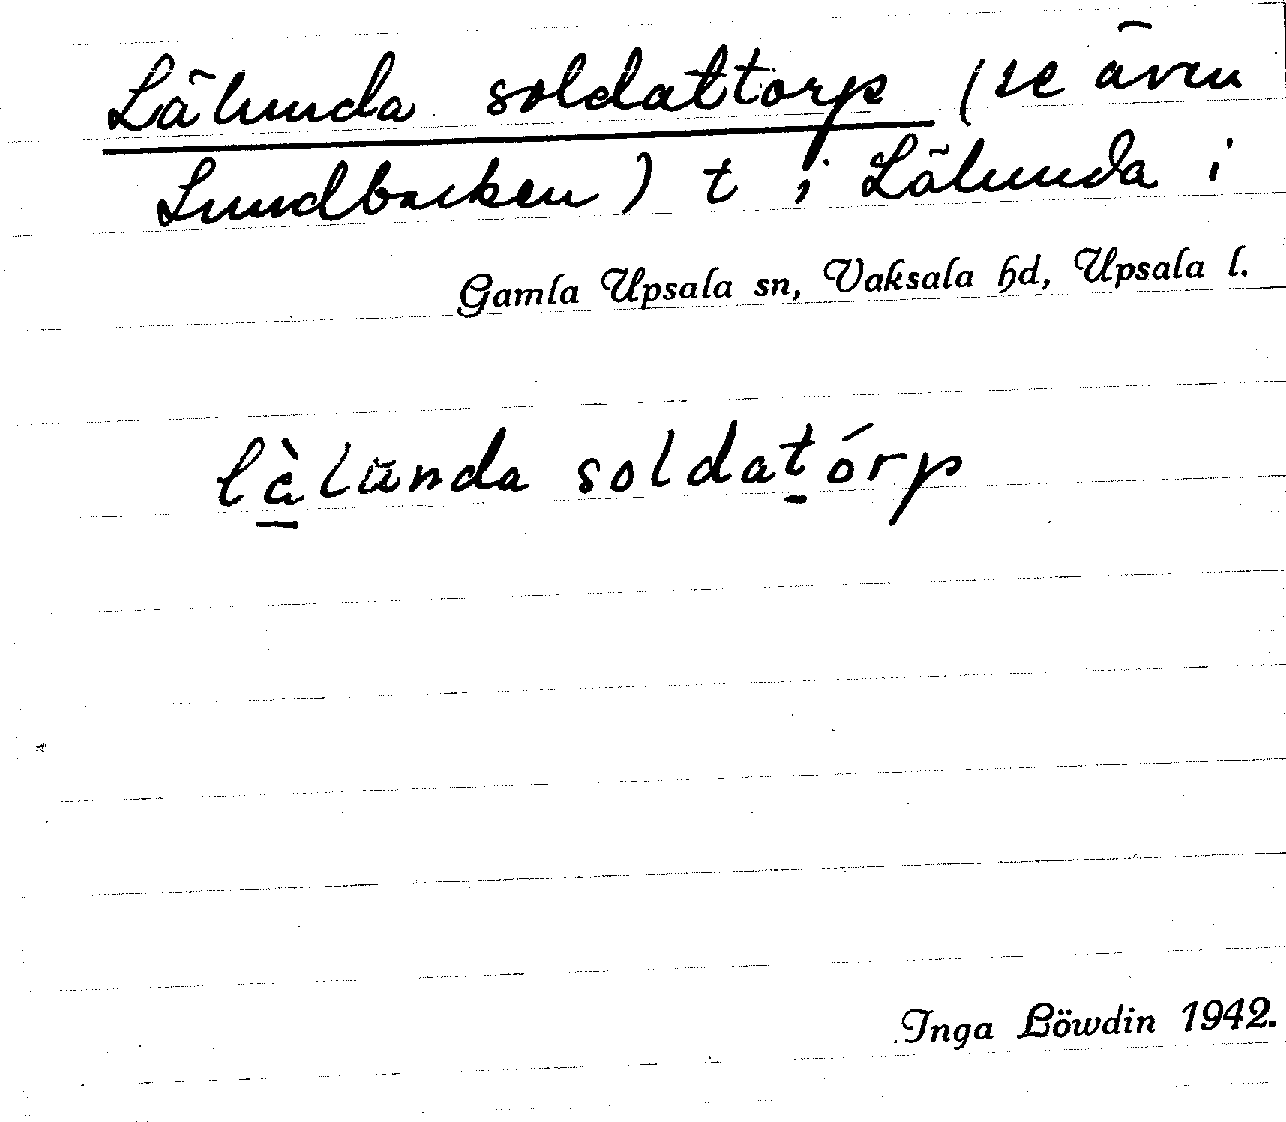 Lälunda soldattorp (se även
Lundbacken) t i Lälunda i
Gamla Upsala sn, Vaksala hd, Upsala l.
là̱lŭnda soldaṯórp
Inga Löwdin 1942.